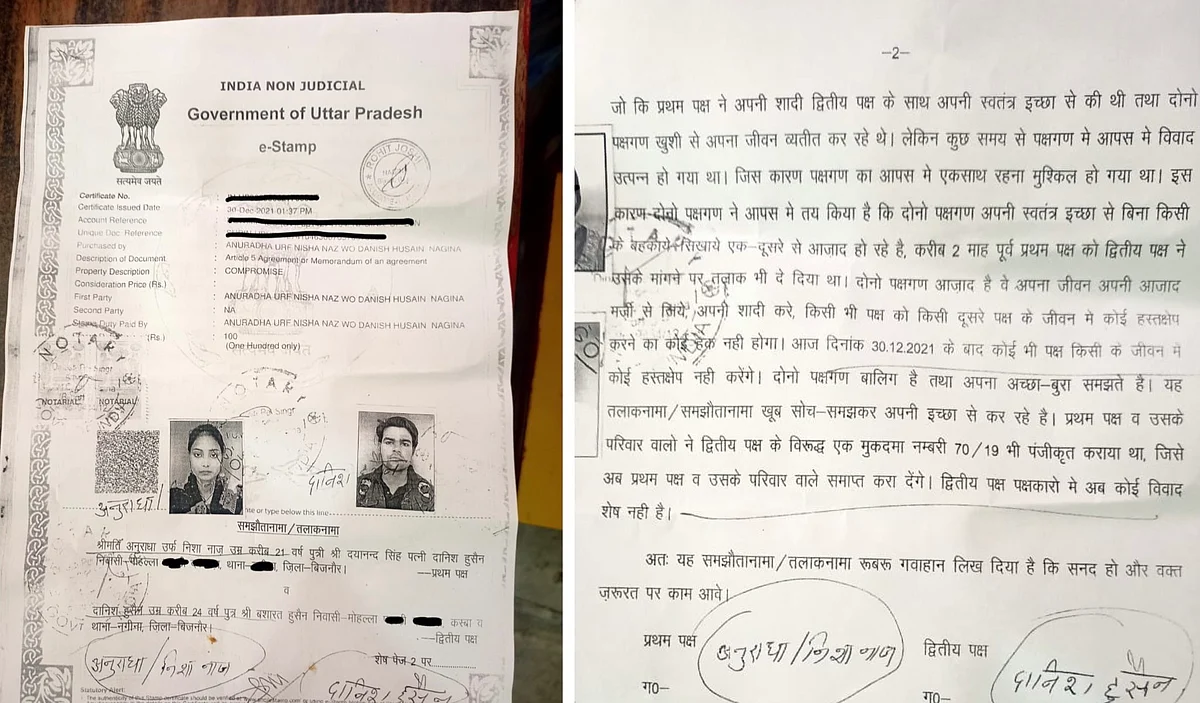 INDIA NON JUDICIAL
Government of Uttar Pradesh
e-Stamp
सत्यमेव जयते
ROHIT
Certificate No. :
Certificate Issued Date : 30-Dec-2021 01:37 PM
Account Reference :
Unique Doc. Reference :
Purchased by : ANURADHA URF NISHA NAZ WO DANISH HUSAIN NAGINA
Description of Document : Article 5 Agreement or Memorandum of an agreement
Property Description : COMPROMISE
Consideration Price (Rs.) :
First Party : ANURADHA URF NISHA NAZ WO DANISH HUSAIN NAGINA
Second Party : NA
Stamp Duty Paid By : ANURADHA URF NISHA NAZ WO DANISH HUSAIN NAGINA
(Rs.) : 100
(One Hundred only)
NOTARY
NOTARIAL NOTARIAL
NOTAR
अनुराधा/
दानिश
ite or type below this line
समझौतानामा/तलाकनामा
श्रीमति अनुराधा उर्फ निशा नाज़ उम्र करीब 21 वर्ष पुत्री श्री दयानन्द सिंह पत्नी दानिश हुसैन
निवासी-मोहल्ला थाना- जिला-बिजनौर।
—प्रथम पक्ष
व
दानिश हुसैन उम्र करीब 24 वर्ष पुत्र श्री बशारत हुसैन निवासी-मोहल्ला , कस्बा व
थाना-नगीना, जिला-बिजनौर।
—द्वितीय पक्ष
शेष पेज 2 पर
अनुराधा/निशा नाज
दानिश हुसैन
Statutory Alert:
–2–
जो कि प्रथम पक्ष ने अपनी शादी द्वितीय पक्ष के साथ अपनी स्वतंत्र इच्छा से की थी तथा दोनो
पक्षगण खुशी से अपना जीवन व्यतीत कर रहे थे। लेकिन कुछ समय से पक्षगण मे आपस मे विवाद
उत्पन्न हो गया था। जिस कारण पक्षगण का आपस मे एकसाथ रहना मुश्किल हो गया था। इस
कारण दोनो पक्षगण ने आपस मे तय किया है कि दोनो पक्षगण अपनी स्वतंत्र इच्छा से बिना किसी
के बहकाये-सिखाये एक-दूसरे से आज़ाद हो रहे है, करीब 2 माह पूर्व प्रथम पक्ष को द्वितीय पक्ष ने
उसके मांगने पर तलाक भी दे दिया था। दोनो पक्षगण आज़ाद है वे अपना जीवन अपनी आजाद
मर्ज़ी से जिये, अपनी शादी करे, किसी भी पक्ष को किसी दूसरे पक्ष के जीवन मे कोई हस्तक्षेप
करने का कोई हक नही होगा। आज दिनांक 30.12.2021 के बाद कोई भी पक्ष किसी के जीवन मे
कोई हस्तक्षेप नही करेंगे। दोनो पक्षगण बालिग है तथा अपना अच्छा-बुरा समझते है। यह
तलाकनामा/समझौतानामा खूब सोच-समझकर अपनी इच्छा से कर रहे है। प्रथम पक्ष व उसके
परिवार वालो ने द्वितीय पक्ष के विरूद्ध एक मुकदमा नम्बरी 70/19 भी पंजीकृत कराया था, जिसे
अब प्रथम पक्ष व उसके परिवार वाले समाप्त करा देंगे। द्वितीय पक्ष पक्षकारो मे अब कोई विवाद
शेष नही है।
अतः यह समझौतानामा/तलाकनामा रूबरू गवाहान लिख दिया है कि सनद हो और वक्त
ज़रूरत पर काम आवे।
प्रथम पक्ष अनुराधा/निशा नाज द्वितीय पक्ष दानिश हुसैन
ग0– ग0–